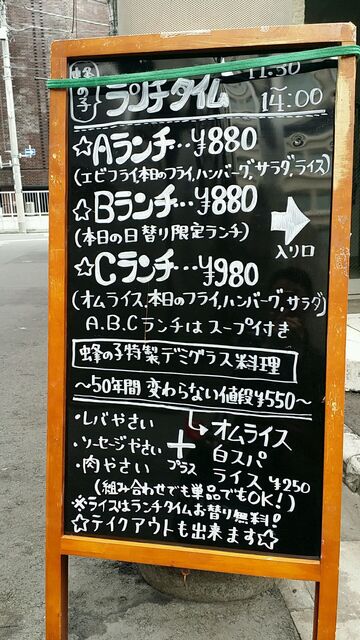 蜂の子
ランチタイム
11:30
〜
14:00
☆Aランチ…¥880
(エビフライ,本日のフライ,ハンバーグ,サラダ,ライス)
☆Bランチ…¥880
(本日の日替り限定ランチ)
入り口
☆Cランチ…¥980
(オムライス,本日のフライ,ハンバーグ,サラダ)
A.B.Cランチは スープ付き
蜂の子特製デミグラス料理
〜50年間 変わらない値段¥550〜
・レバやさい
・ソーセージやさい
・肉やさい
+
プラス
オムライス
白スパ
ライス ¥250
(組み合わせでも単品でもOK!)
※ライスはランチタイムお替り無料!
☆テイクアウトも出来ます☆